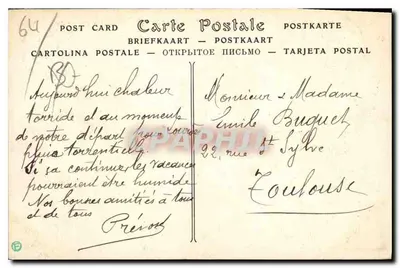 64
POST CARD Carte Postale POSTKARTE
BRIEFKAART — POSTKAART
CARTOLINA POSTALE — ОТКРЫТОЕ ПИСЬМО — TARJETA POSTAL
(8)
Aujourd'hui chaleur
torride et au moment
de notre départ pour
pluie torrentielle
Si sa continue, les vacances
pourraient être humide
Nos bonnes amitiés à tous
et de tous
Prévost
Monsieur & Madame
Emile Buguet
22, rue St Sylve
Toulouse